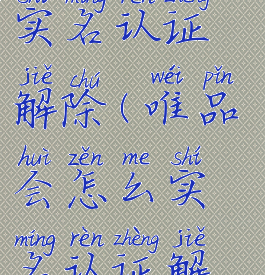 shí míng rèn zhèng
实名认证
jiě chú wéi pǐn
解除(唯品
huì zěn me shí
会怎么实
míng rèn zhèng jiě
名认证解